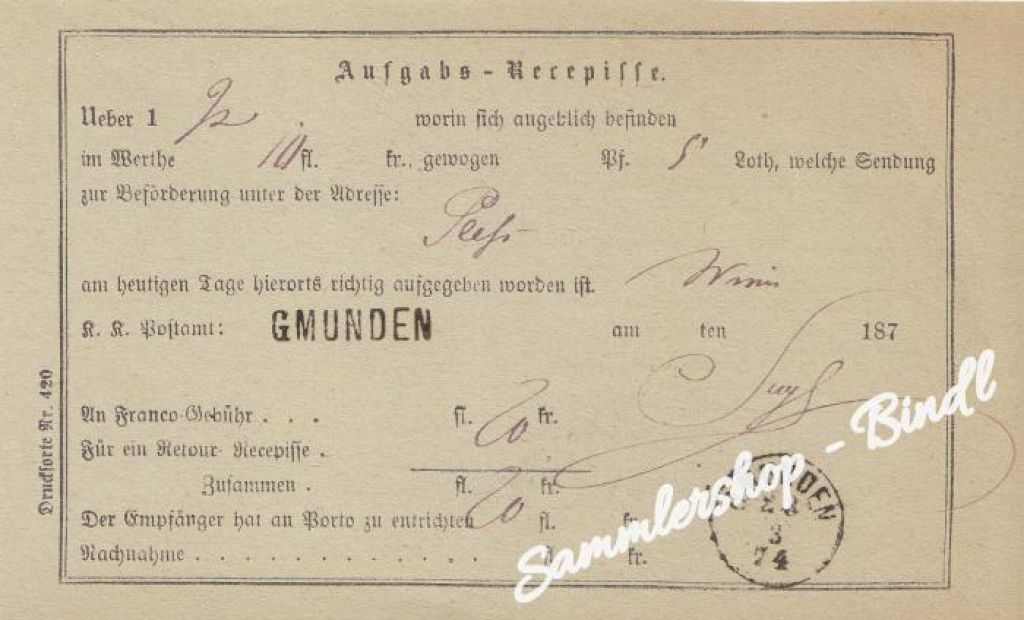 Aufgabs-Recepisse.
Ueber 1 worin sich angeblich befinden
im Werthe 10 fl. kr., gewogen Pf. 5 Loth, welche Sendung
zur Beförderung unter der Adresse:
am heutigen Tage hierorts richtig aufgegeben worden ist. Wien
K. K. Postamt: GMUNDEN am ten 187
An Franco-Gebühr . . . fl. 20 kr.
Für ein Retour-Recepisse .
Zusammen . fl. 20 kr.
Der Empfänger hat an Porto zu entrichten fl. kr.
Nachnahme . . . . . . . . . . kr.
Drucksorte Nr. 420
GMUNDEN
3
74
Sammlershop - Bindl